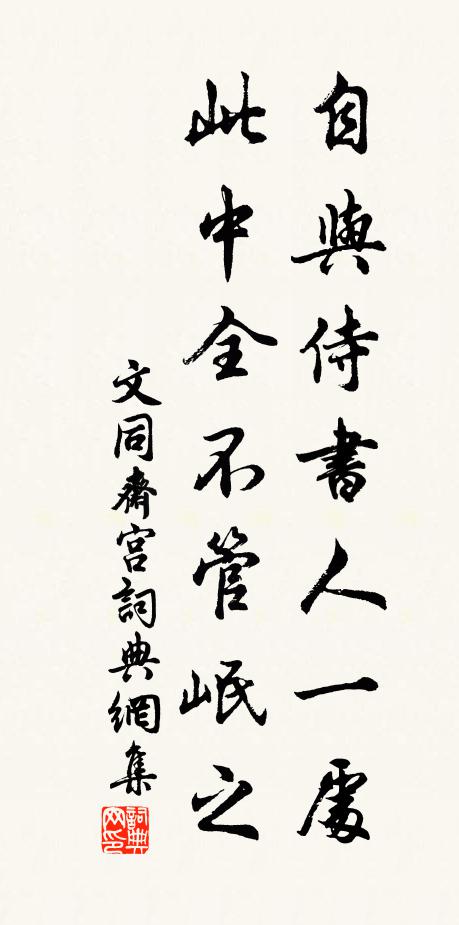 自與侍書人一處
此中全不管岷之
文同齋宮詞典網集
詞典网印